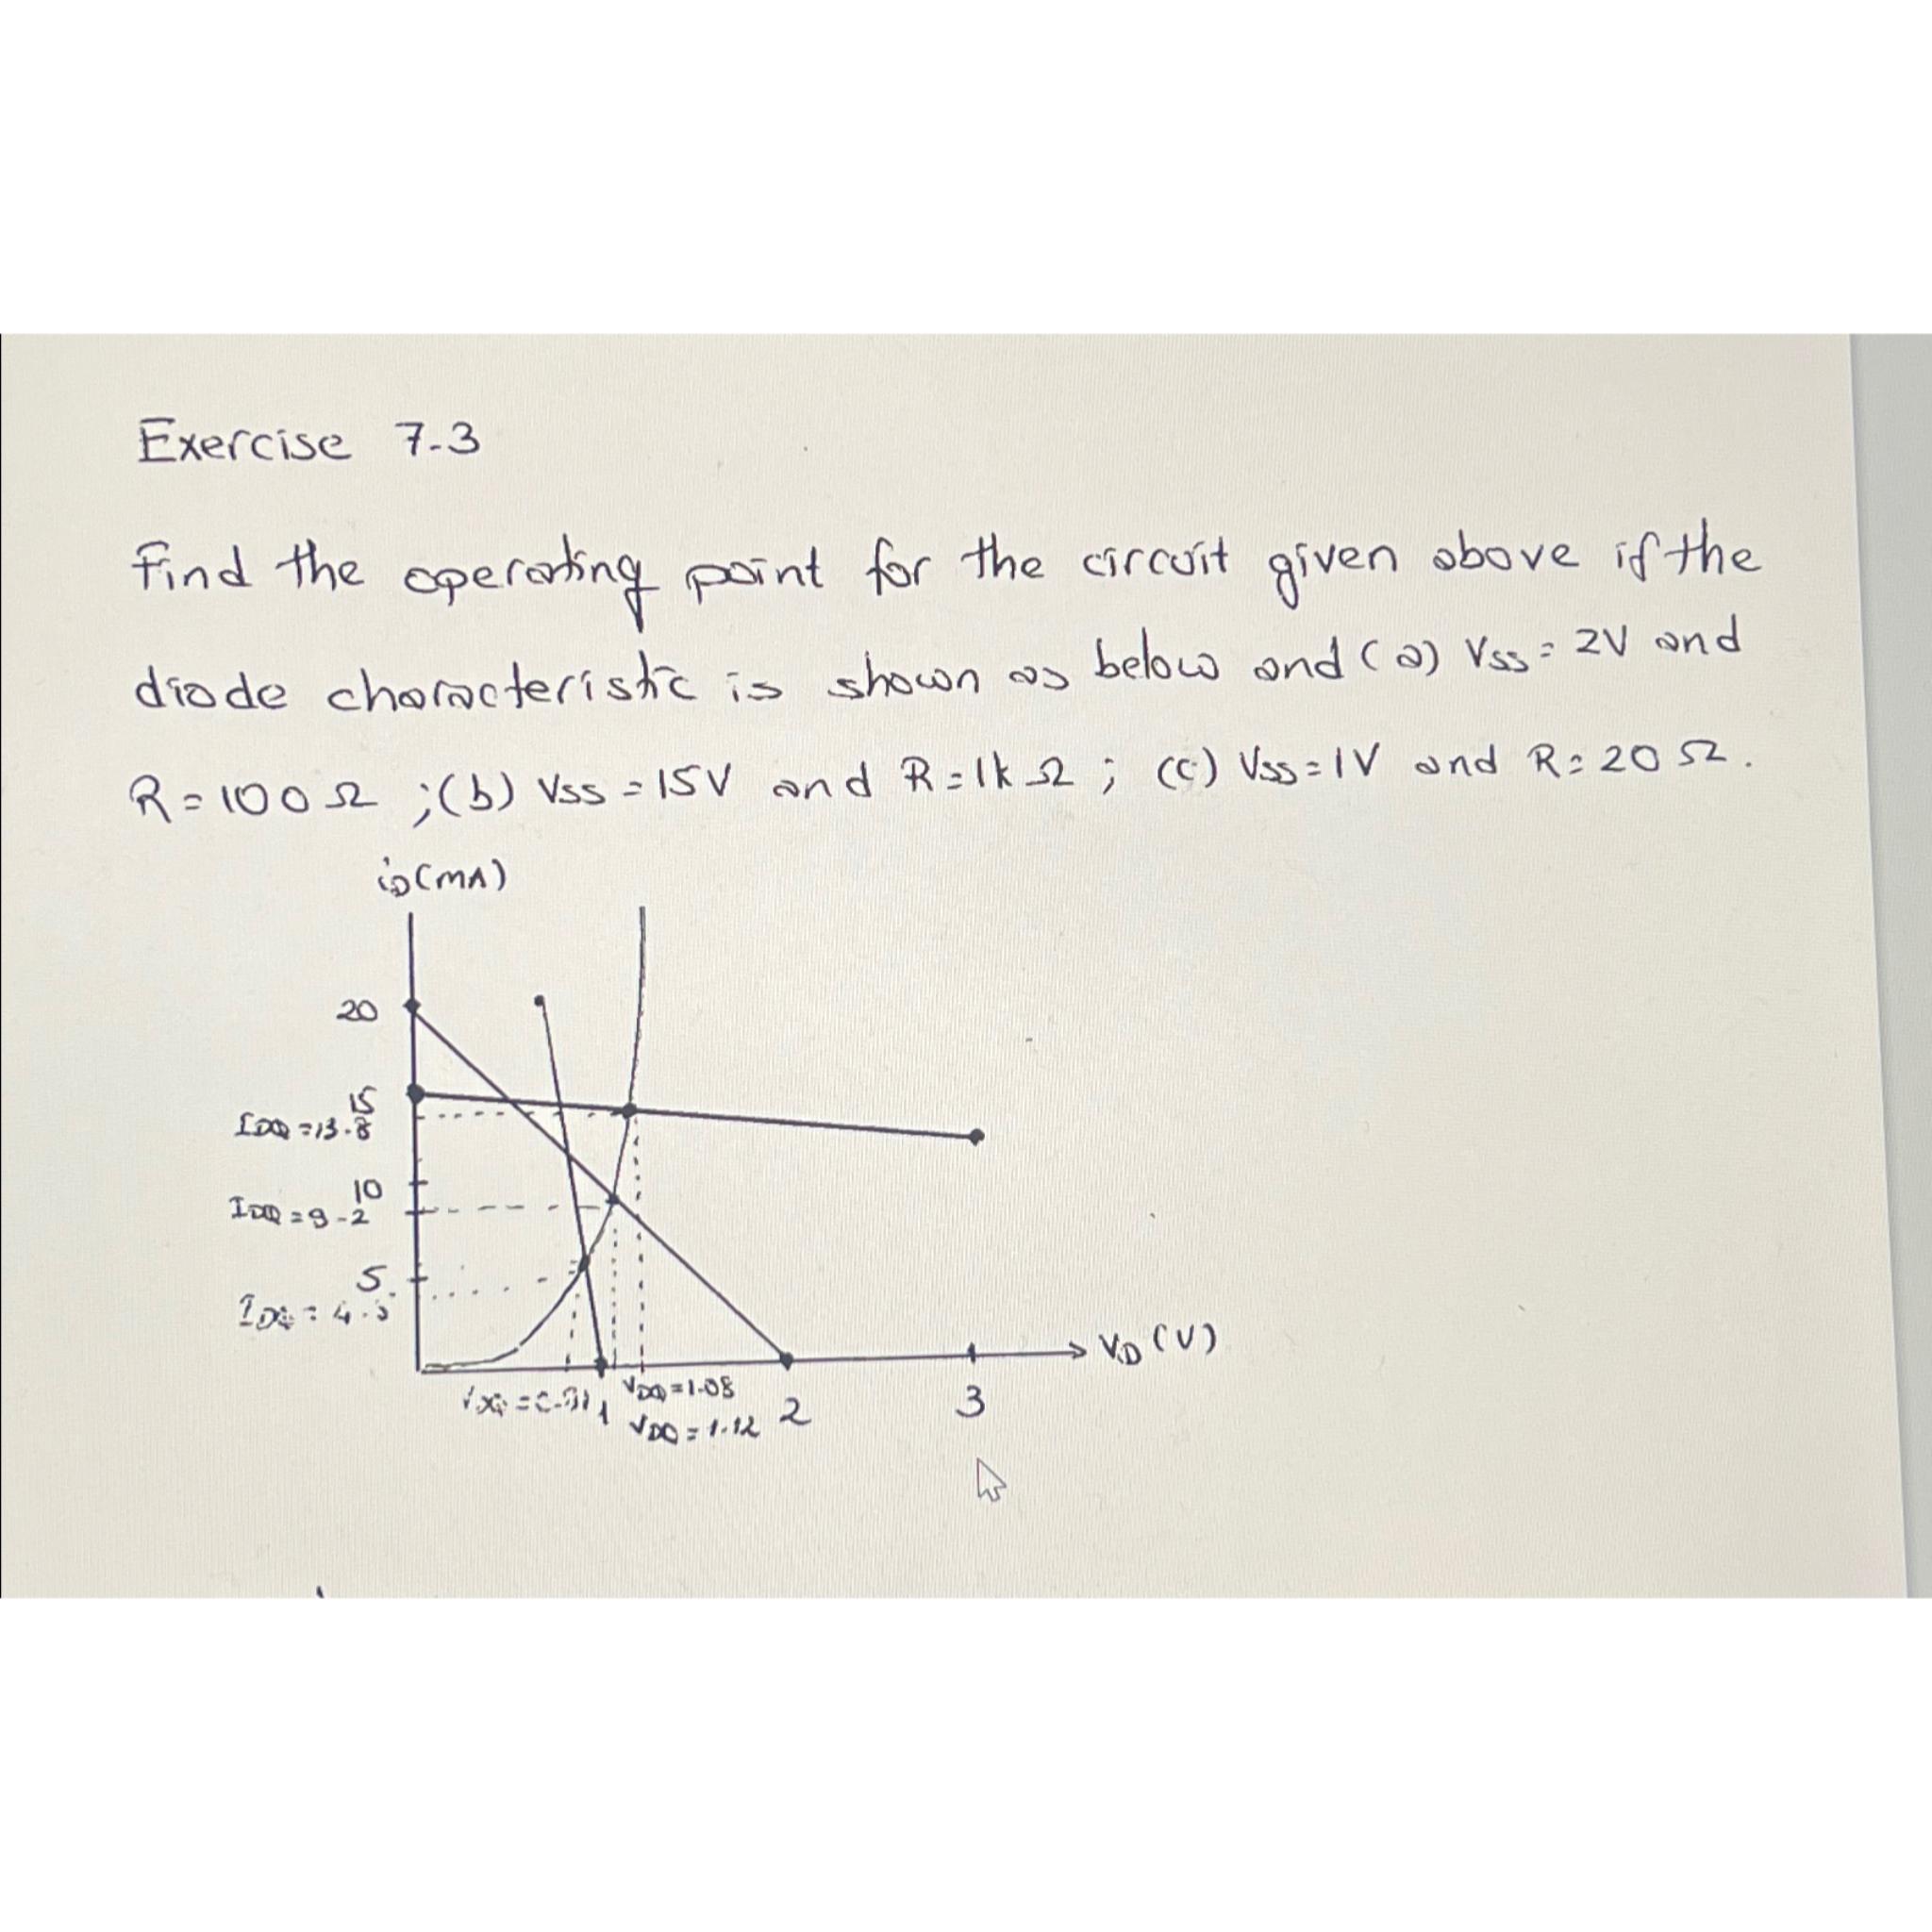 Exercise 7-3
Find the operating point for the circuit given above if the
diode characteristic is shown as below and (a) Vss = 2V and
R = 100 Ω ; (b) Vss = 15V and R = 1k Ω ; (c) Vss = 1V and R = 20 Ω.
iD (mA)
20
15
IDQ = 13.8
10
IDQ = 9-2
5
VD (V)
VDQ = 1.08
1
VDQ = 1.12
2
3